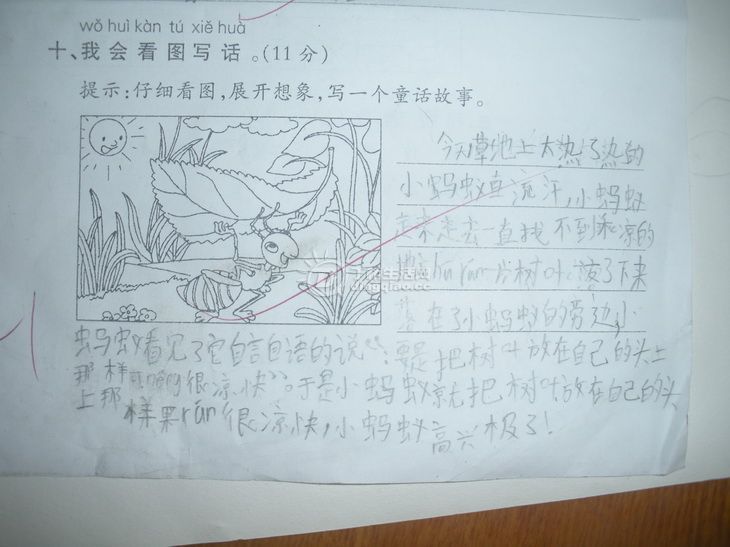 wǒ huì kàn tú xiě huà
十、我会看图写话。(11分)
提示:仔细看图,展开想象,写一个童话故事。
今天草地上太热了热的
小蚂蚁直流汗,小蚂蚁
走来走去一直找不到凉的
地 hū rán 片树叶 落了下来
落在了小蚂蚁的旁边,小
蚂蚁看见了它自言自语的说“:要是把树叶放在自己的头上
那样 很凉快”。于是小蚂蚁就把树叶放在自己的头
上那样果rán很凉快,小蚂蚁高兴极了!